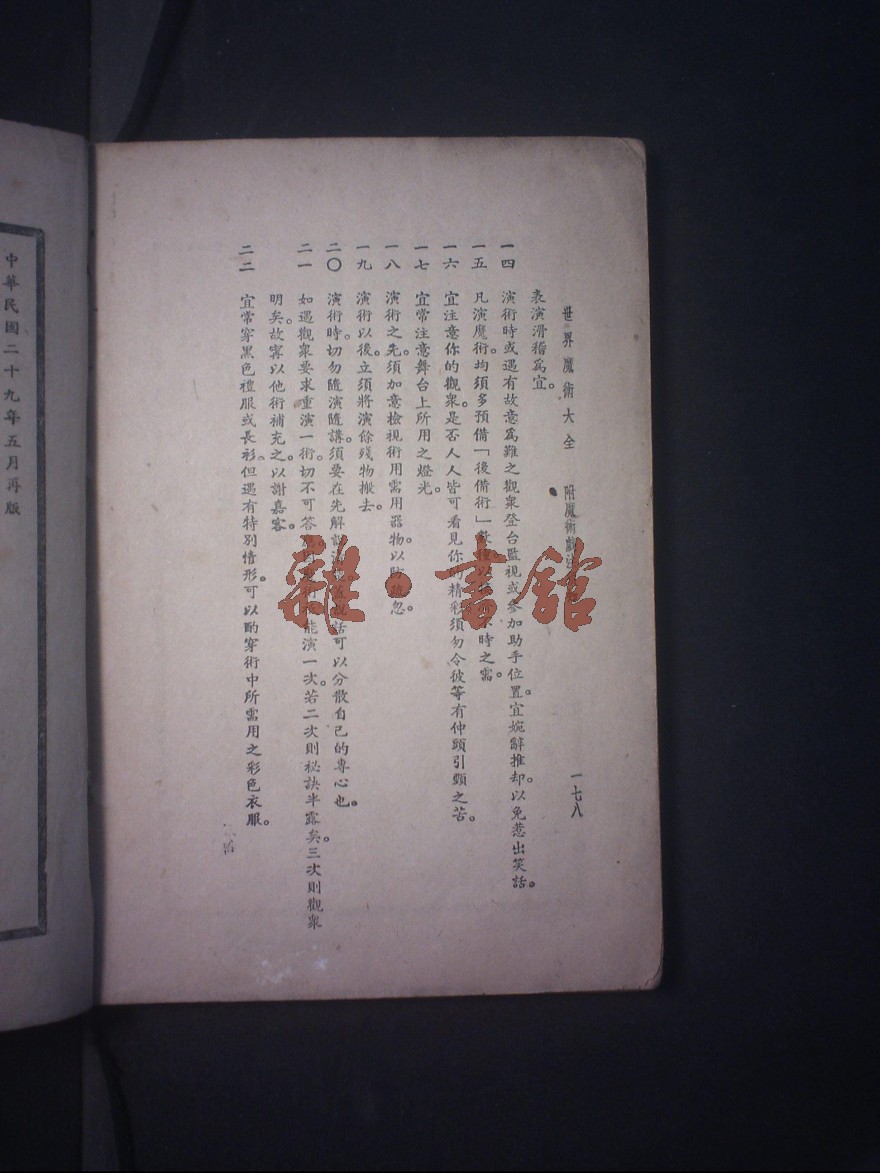 世界魔術大全 附魔術戲法
一七八
表演滑稽爲宜。
一四 演術時或遇有故意爲難之觀衆登台監視或參加助手位置。宜婉辭推却。以免惹出笑話。
一五 凡演魔術。均須多預備「後備術」時之需。
一六 宜注意你的觀衆。是否人人皆可看見你的精彩須勿令彼等有仲頭引頸之苦。
一七 宜常注意舞台上所用之燈光。
一八 演術之先。須加意檢視術用需用器物。以防疏忽。
一九 演術以後。立須將演餘殘物搬去。
二〇 演術時。切勿隨演隨講。須要在先解說話可以分散自己的專心也。
二一 如遇觀衆要求重演一術。切不可答能演一次。若二次則秘訣半露矣。三次則觀衆
明矣。故寧以他術補充之。以謝嘉客。
二二 宜常穿黑色禮服或長衫。但遇有特別情形。可以酌穿術中所需用之彩色衣服。
中華民國二十九年五月再版
雜·書館